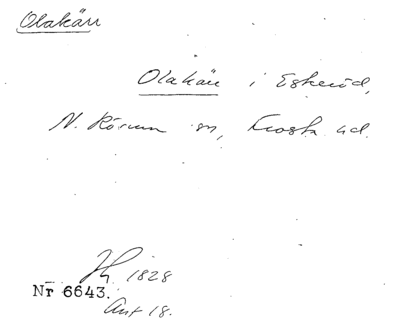 Olakärr
Olakärr i Eskeröd,
N. Rörum sn, Frosta hd.
1828
Nr 6643.
Ant 18.